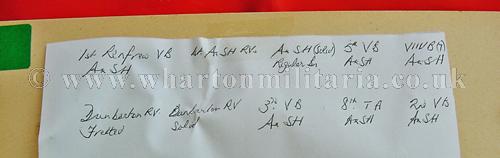 1st Renfrew VB   1st A&SH RVs   A&SH (Solid)   5th VB   VII VB (?)
A&SH   Regular Bn   A&SH   A&SH
© www.whartonmilitaria.com ©
Dunbarton RV   Dunbarton RV   3rd VB   8th TA   2nd VB
Fretted   Solid   A&SH   A&SH   A&SH